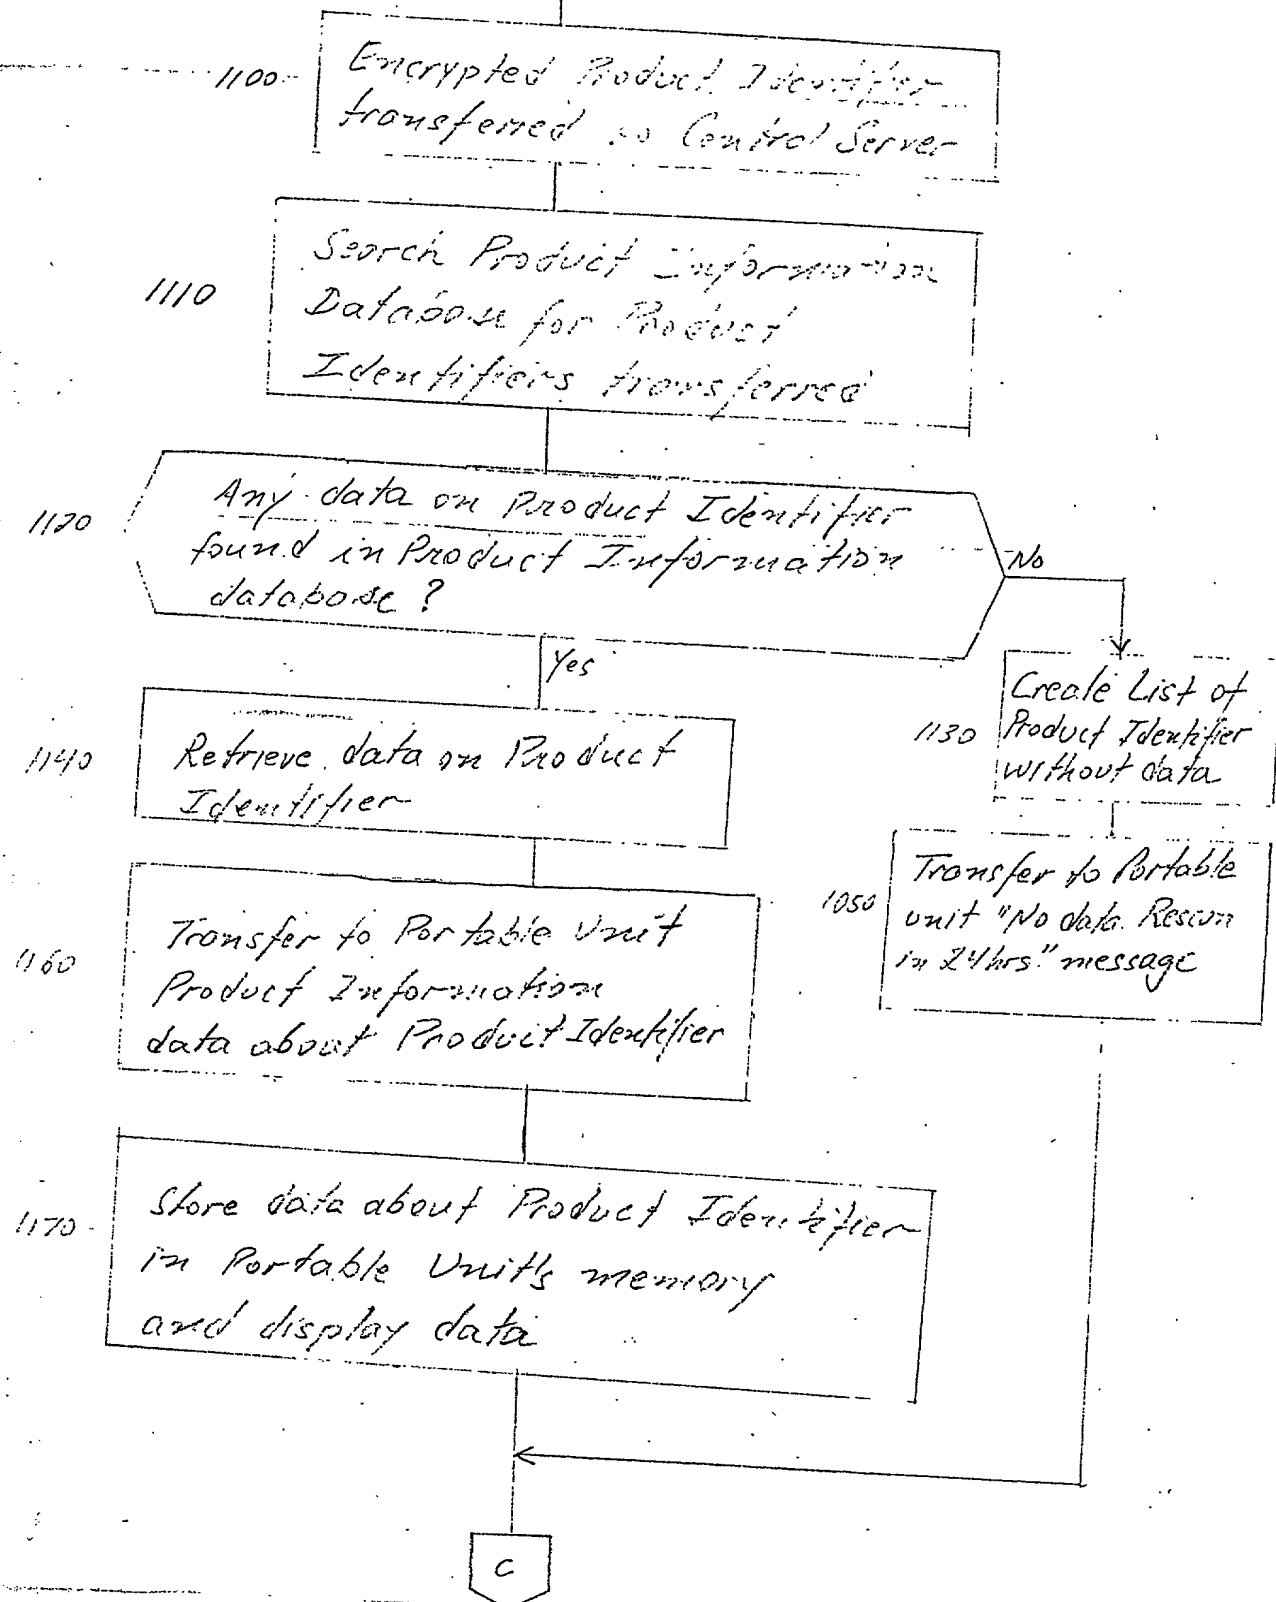 1100
Encrypted Product Identifier
transferred to Control Server
1110
Search Product Information
Database for Product
Identifiers transferred
1120
Any data on Product Identifier
found in Product Information
database?
No
Yes
1130
Create List of
Product Identifier
without data
1140
Retrieve data on Product
Identifier
1050
Transfer to Portable
unit "No data. Rescan
in 24hrs." message
1160
Transfer to Portable Unit
Product Information
data about Product Identifier
1170
Store data about Product Identifier
in Portable Unit's memory
and display data
C